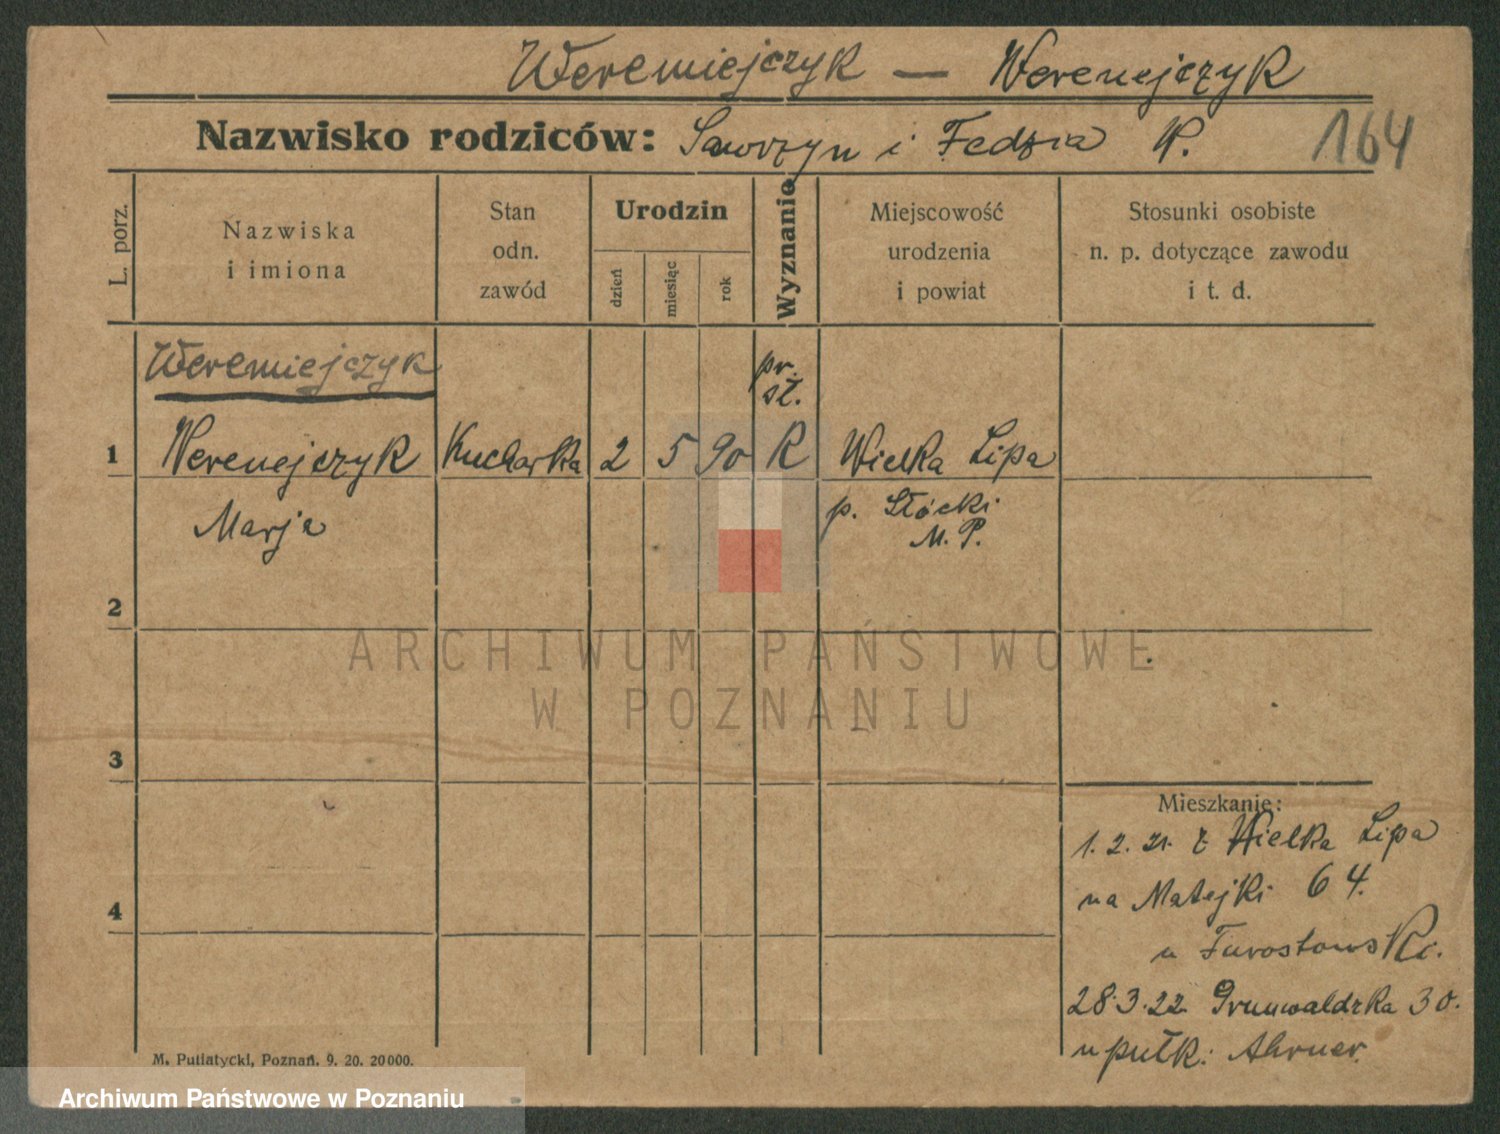 Weremiejczyk — Werenejczyk
Nazwisko rodziców: Sawrzyn i Fedzia R.
164
L. porz.
Nazwiska
i imiona
Stan
odn.
zawód
Urodzin
dzień
miesiąc
rok
Wyznanie
Miejscowość
urodzenia
i powiat
Stosunki osobiste
n. p. dotyczące zawodu
i t. d.
Weremiejczyk
pr.
sł.
1 Werenejczyk Kucharka 2 5 90 R Wielka Lipa
Marja
p. Słócki
M. P.
2
3
4
Mieszkanie:
1. 2. 21. z Wielka Lipa
na Matejki 64.
u Turostowski.
28.3.22. Grunwaldzka 30.
u pułk.
M. Putiatycki, Poznań. 9. 20. 20000.
ARCHIWUM PAŃSTWOWE
W POZNANIU
Archiwum Państwowe w Poznaniu